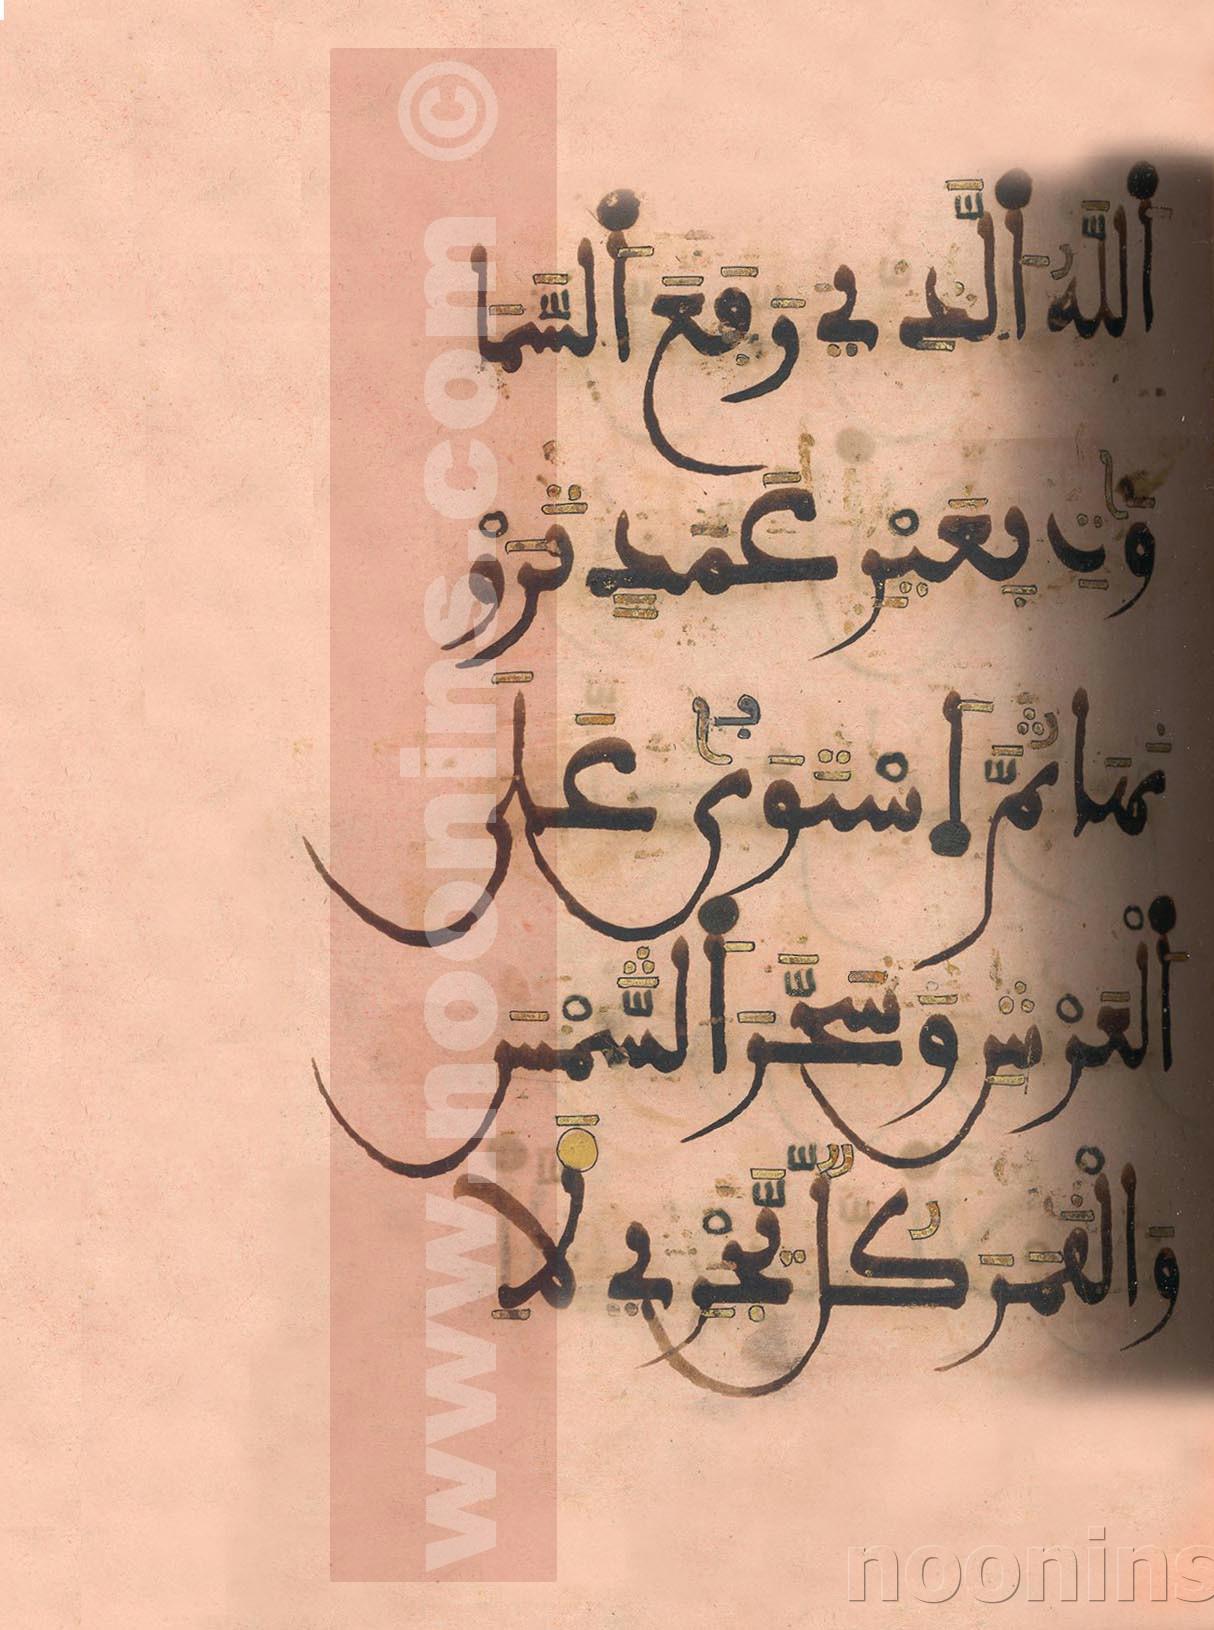 أللَّهُ ألَّذِي رَفَعَ ألسَّمَا
وَٰتِ بِغَيْرِ عَمَدٍ تَرَوْ
نَهَا ثُمَّ اَ۪سْتَوَىٰ عَلَى
ألْعَرْشِ وَسَخَّرَ ألشَّمْسَ
وَالْقَمَرَ كُلٌّ يَّجْرِي لِأَ
www.noonins.com ©
noonins